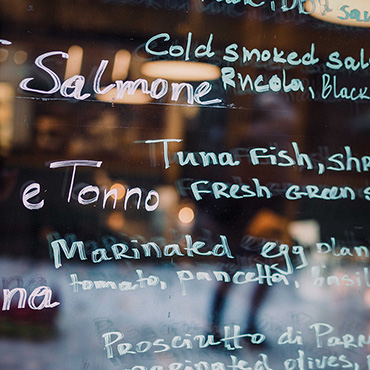 Cold smoked sal
Salmone
Rucola, Black
Tuna Fish, shr
e Tonno
Fresh Green s
Marinated egg plan
tomato, pancetta, basil
na
Prosciutto di Parm
marinated olives,